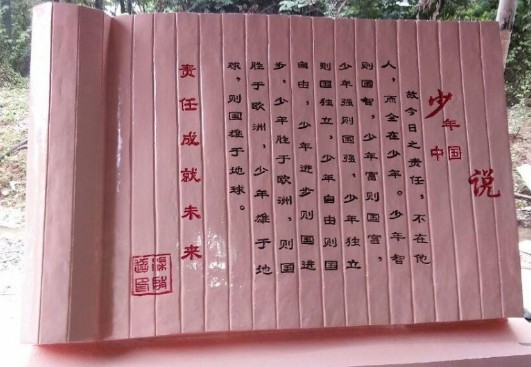 少年
中国
说
故今日之责任，不在他
人，而全在少年。少年智
则国智，少年富则国富，
少年强则国强，少年独立
则国独立，少年自由则国
自由，少年进步则国进
步，少年胜于欧洲，则国
胜于欧洲，少年雄于地
球，则国雄于地球。
责任成就未来